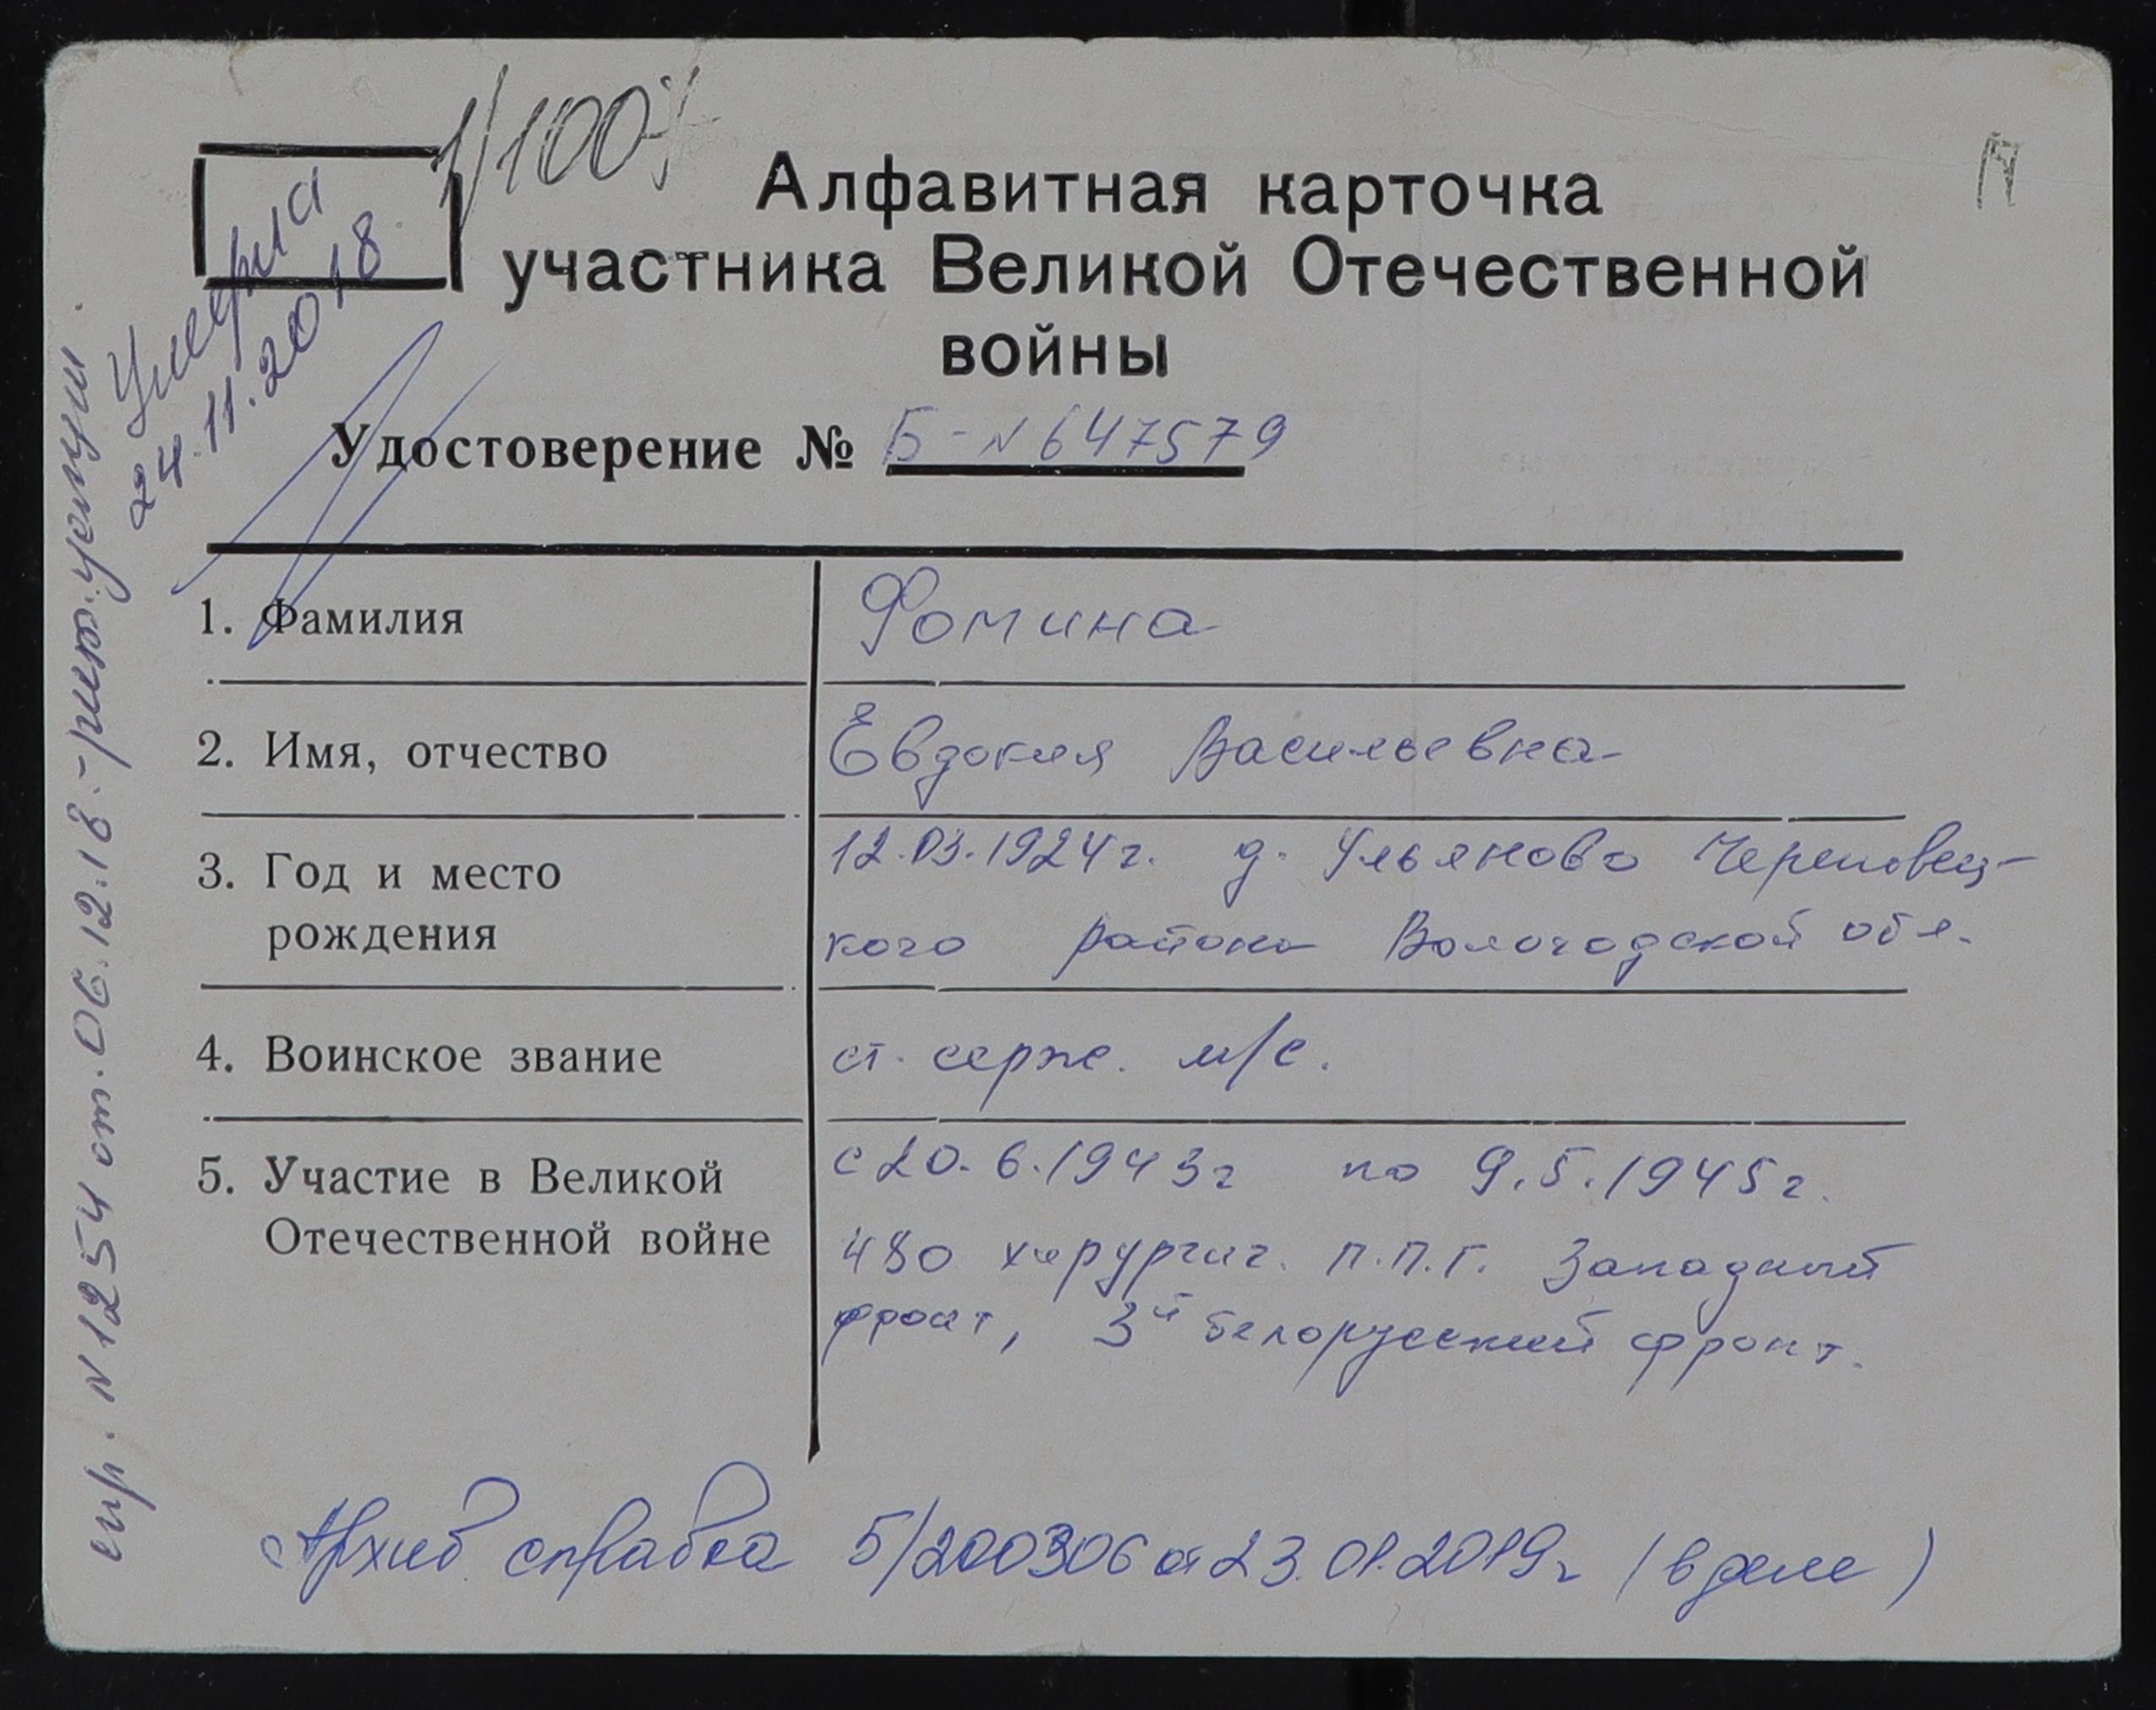 1/100%
Алфавитная карточка
участника Великой Отечественной
войны
П
Умерла
24.11.2018
Удостоверение № Б-N 647579
1. Фамилия Фомина
2. Имя, отчество Евдокия Васильевна
3. Год и место 12.03.1924г. д. Ульяново Череповец-
рождения кого района Вологодской обл.
4. Воинское звание ст. серж. м/с.
5. Участие в Великой с 20.6.1943г по 9.5.1945г.
Отечественной войне 480 хирургич. п.п.г. Западный
фронт, 3й Белорусский фронт.
Архив. справка 5/200306 от 23.01.2019г (в деле)
спр. N 1254 от 06.12.18 -